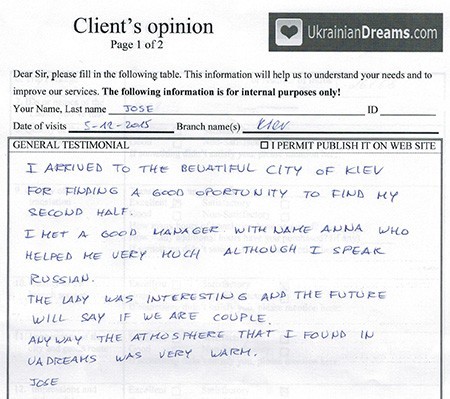 Client's opinion
Page 1 of 2
UkrainianDreams.com
Dear Sir, please fill in the following table. This information will help us to understand your needs and to
improve our services. The following information is for internal purposes only!
Your Name, Last name JOSE ID
Date of visits 5-12-2015 Branch name(s) Kiev
GENERAL TESTIMONIAL ☐ I PERMIT PUBLISH IT ON WEB SITE
I ARRIVED TO THE BEUATIFUL CITY OF KIEV
FOR FINDING A GOOD OPORTUNITY TO FIND MY
SECOND HALF.
I MET A GOOD MANAGER WITH NAME ANNA WHO
HELPED ME VERY MUCH ALTHOUGH I SPEAK
RUSSIAN.
THE LADY WAS INTERESTING AND THE FUTURE
WILL SAY IF WE ARE COUPLE.
ANYWAY THE ATMOSPHERE THAT I FOUND IN
UADREAMS WAS VERY WARM.
JOSE